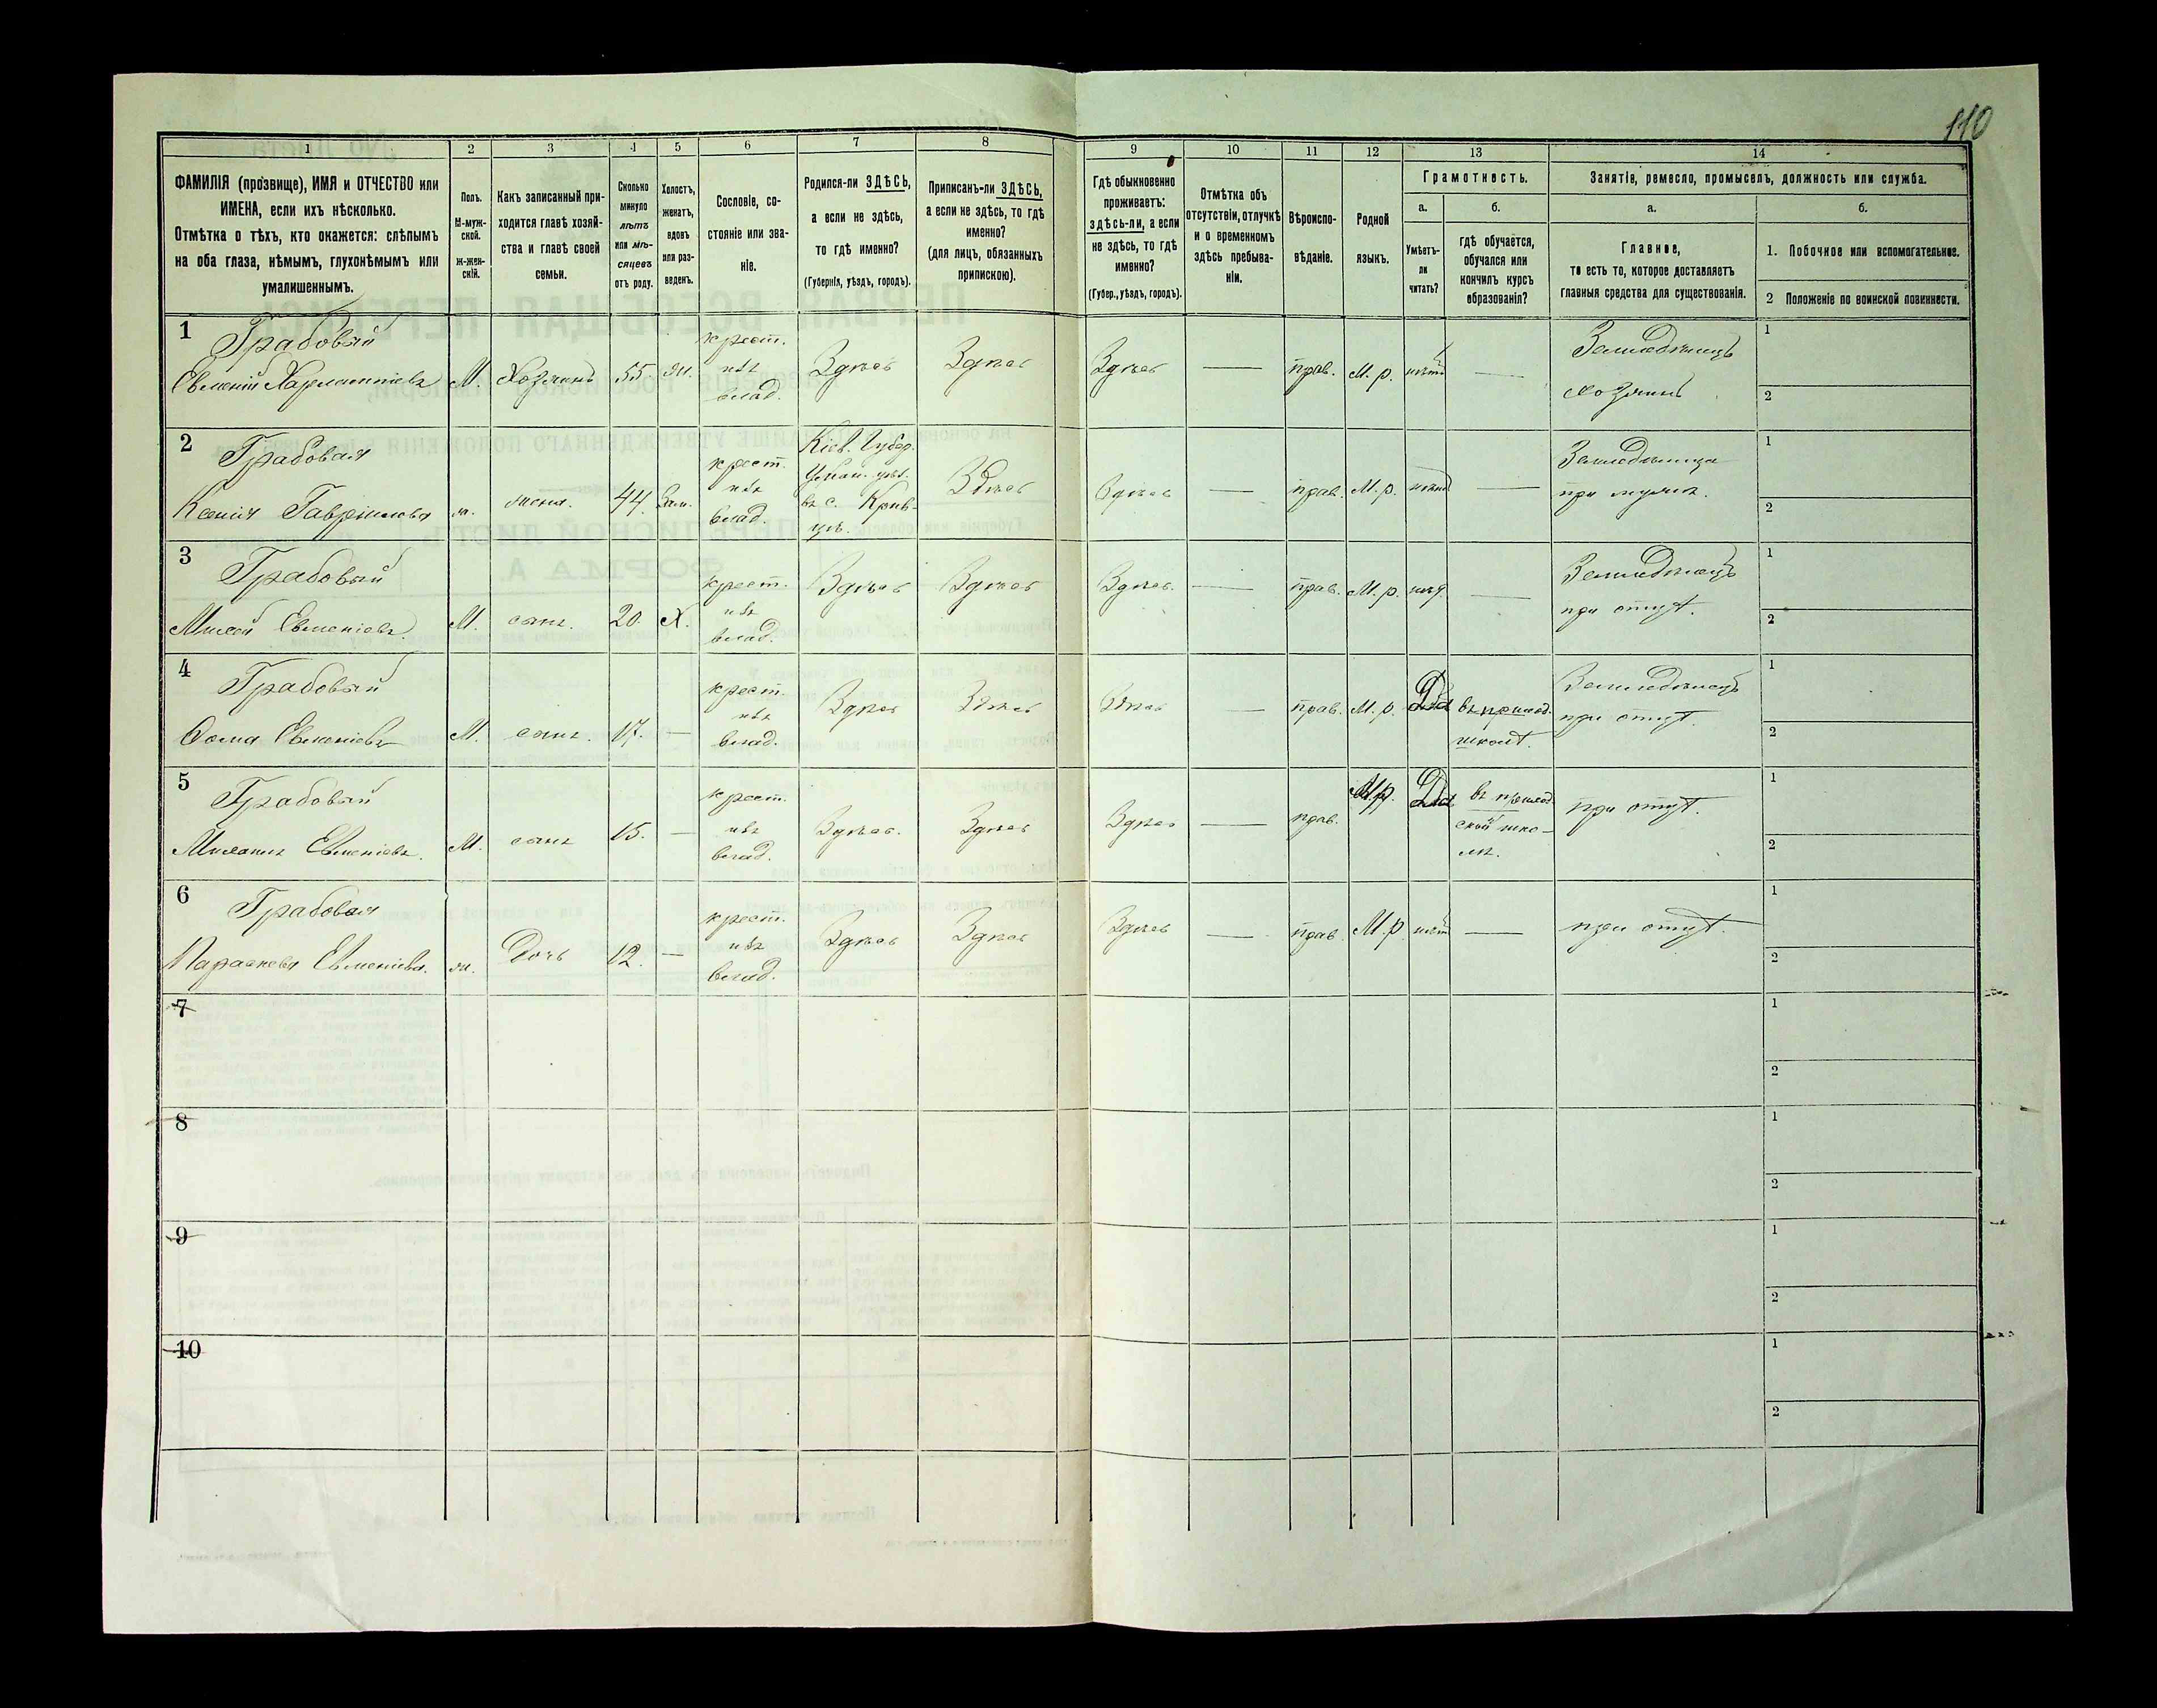 110
1
2
3
4
5
6
7
8
9
10
11
12
13
14
ФАМИЛІЯ (прозвище), ИМЯ и ОТЧЕСТВО или
ИМЕНА, если ихъ нѣсколько.
Отмѣтка о тѣхъ, кто окажется: слѣпымъ
на оба глаза, нѣмымъ, глухонѣмымъ или
умалишеннымъ.
Полъ.
М-муж-
ской.
Ж-жен-
скій.
Какъ записанный при-
ходится главѣ хозяй-
ства и главѣ своей
семьи.
Сколько
минуло
лѣтъ
или мѣ-
сяцевъ
отъ роду.
Холостъ,
женатъ,
вдовъ
или раз-
веденъ.
Сословіе, со-
стояніе или зва-
ніе.
Родился-ли ЗДѢСЬ,
а если не здѣсь,
то гдѣ именно?
(Губернія, уѣздъ, городъ).
Приписанъ-ли ЗДѢСЬ,
а если не здѣсь, то гдѣ
именно?
(для лицъ, обязанныхъ
припискою).
Гдѣ обыкновенно
проживаетъ:
здѣсь-ли, а если
не здѣсь, то гдѣ
именно?
(Губер., уѣздъ, городъ).
Отмѣтка объ
отсутствіи, отлучкѣ
и о временномъ
здѣсь пребыва-
ніи.
Вѣроиспо-
вѣданіе.
Родной
языкъ.
Грамотность.
а.
Умѣетъ-
ли
читать?
б.
гдѣ обучается,
обучался или
кончилъ курсъ
образованія?
Занятіе, ремесло, промыселъ, должность или служба.
а.
Главное,
то есть то, которое доставляетъ
главныя средства для существованія.
б.
1. Побочное или вспомогательное.
2 Положеніе по воинской повинности.
1 Грабовый
Евменій Харлампіевъ
М. Хозяинъ 55 ж. крест.
изъ
влад.
Здѣсь Здѣсь Здѣсь — прав. М. р. нѣтъ —
Земледѣлецъ
хозяинъ
1
2
2 Грабовая
Ксенія Гавріилова
ж. жена. 44. Зам. крест.
изъ
влад.
Кіев. Губер.
Уман. уѣз.
въ с.
Здѣсь Здѣсь — прав. М. р. нѣтъ —
Земледѣлица
при мужѣ.
1
2
3 Грабовый
Евменіевъ.
М. сынъ. 20. Х. крест.
изъ
влад.
Здѣсь Здѣсь Здѣсь. — прав. М. р. —
Земледѣлецъ
при отцѣ.
1
2
4 Грабовый
Ѳома Евменіевъ
М. сынъ. 17. — крест.
изъ
влад.
Здѣсь Здѣсь Здѣсь — прав. М. р. Да въ приход.
школѣ.
Земледѣлецъ
при отцѣ.
1
2
5 Грабовый
Михаилъ Евменіевъ.
М. сынъ 15. — крест.
изъ
влад.
Здѣсь. Здѣсь Здѣсь — прав. М.р. Да въ приход
ской шко-
лѣ.
при отцѣ.
1
2
6 Грабовая
Параскева Евменіева.
ж. Дочь 12. — крест.
изъ
влад.
Здѣсь Здѣсь Здѣсь — прав. М.р. нѣтъ —
при отцѣ.
1
2
7
1
2
8
1
2
9
1
2
10
1
2